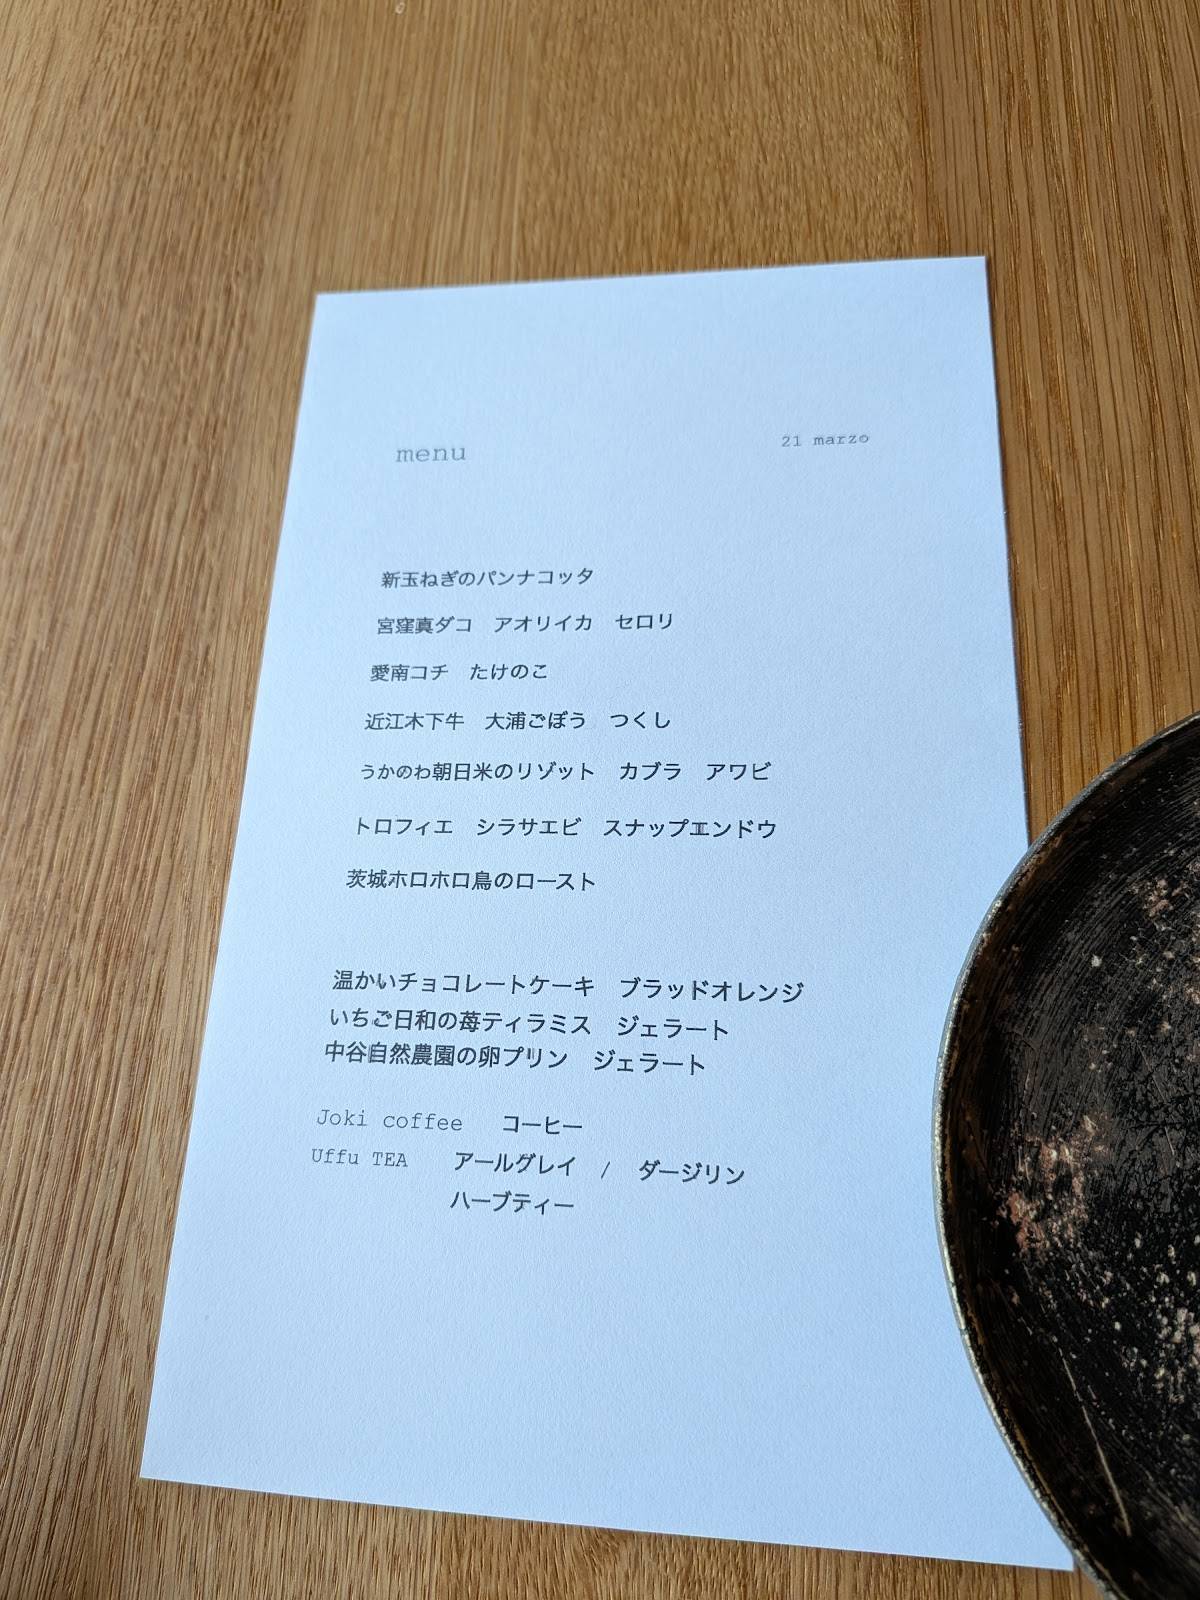 menu
21 marzo
新玉ねぎのパンナコッタ
宮窪真ダコ　アオリイカ　セロリ
愛南コチ　たけのこ
近江木下牛　大浦ごぼう　つくし
うかのわ朝日米のリゾット　カブラ　アワビ
トロフィエ　シラサエビ　スナップエンドウ
茨城ホロホロ鳥のロースト
温かいチョコレートケーキ　ブラッドオレンジ
いちご日和の苺ティラミス　ジェラート
中谷自然農園の卵プリン　ジェラート
Joki coffee　コーヒー
Uffu TEA　アールグレイ　/　ダージリン
ハーブティー